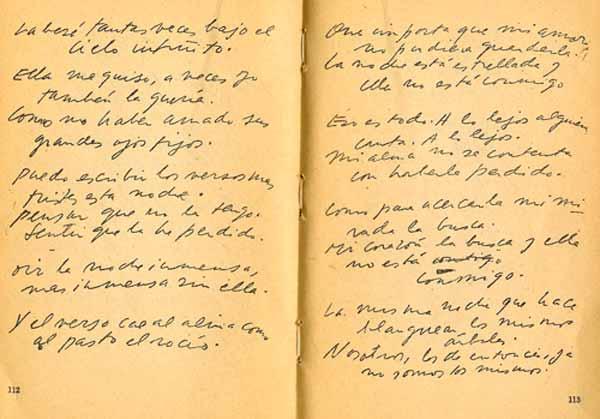 La besé tantas veces bajo el
cielo infinito.
Ella me quiso, a veces yo
también la quería.
Como no haber amado sus
grandes ojos fijos.
Puedo escribir los versos mas
tristes esta noche.
Pensar que no la tengo.
Sentir que la he perdido.
Oir la noche inmensa,
mas inmensa sin ella.
Y el verso cae al alma como
al pasto el rocío.
112
Que importa que mi amor
no pudiera guardarla.
La noche está estrellada y
ella no está conmigo
Eso es todo. A lo lejos alguien
canta. A lo lejos.
Mi alma no se contenta
con haberla perdido.
Como para acercarla mi mi-
rada la busca.
Mi corazón la busca y ella
no está contigo
conmigo.
La misma noche que hace
blanquear los mismos
árboles.
Nosotros, los de entonces, ya
no somos los mismos.
113